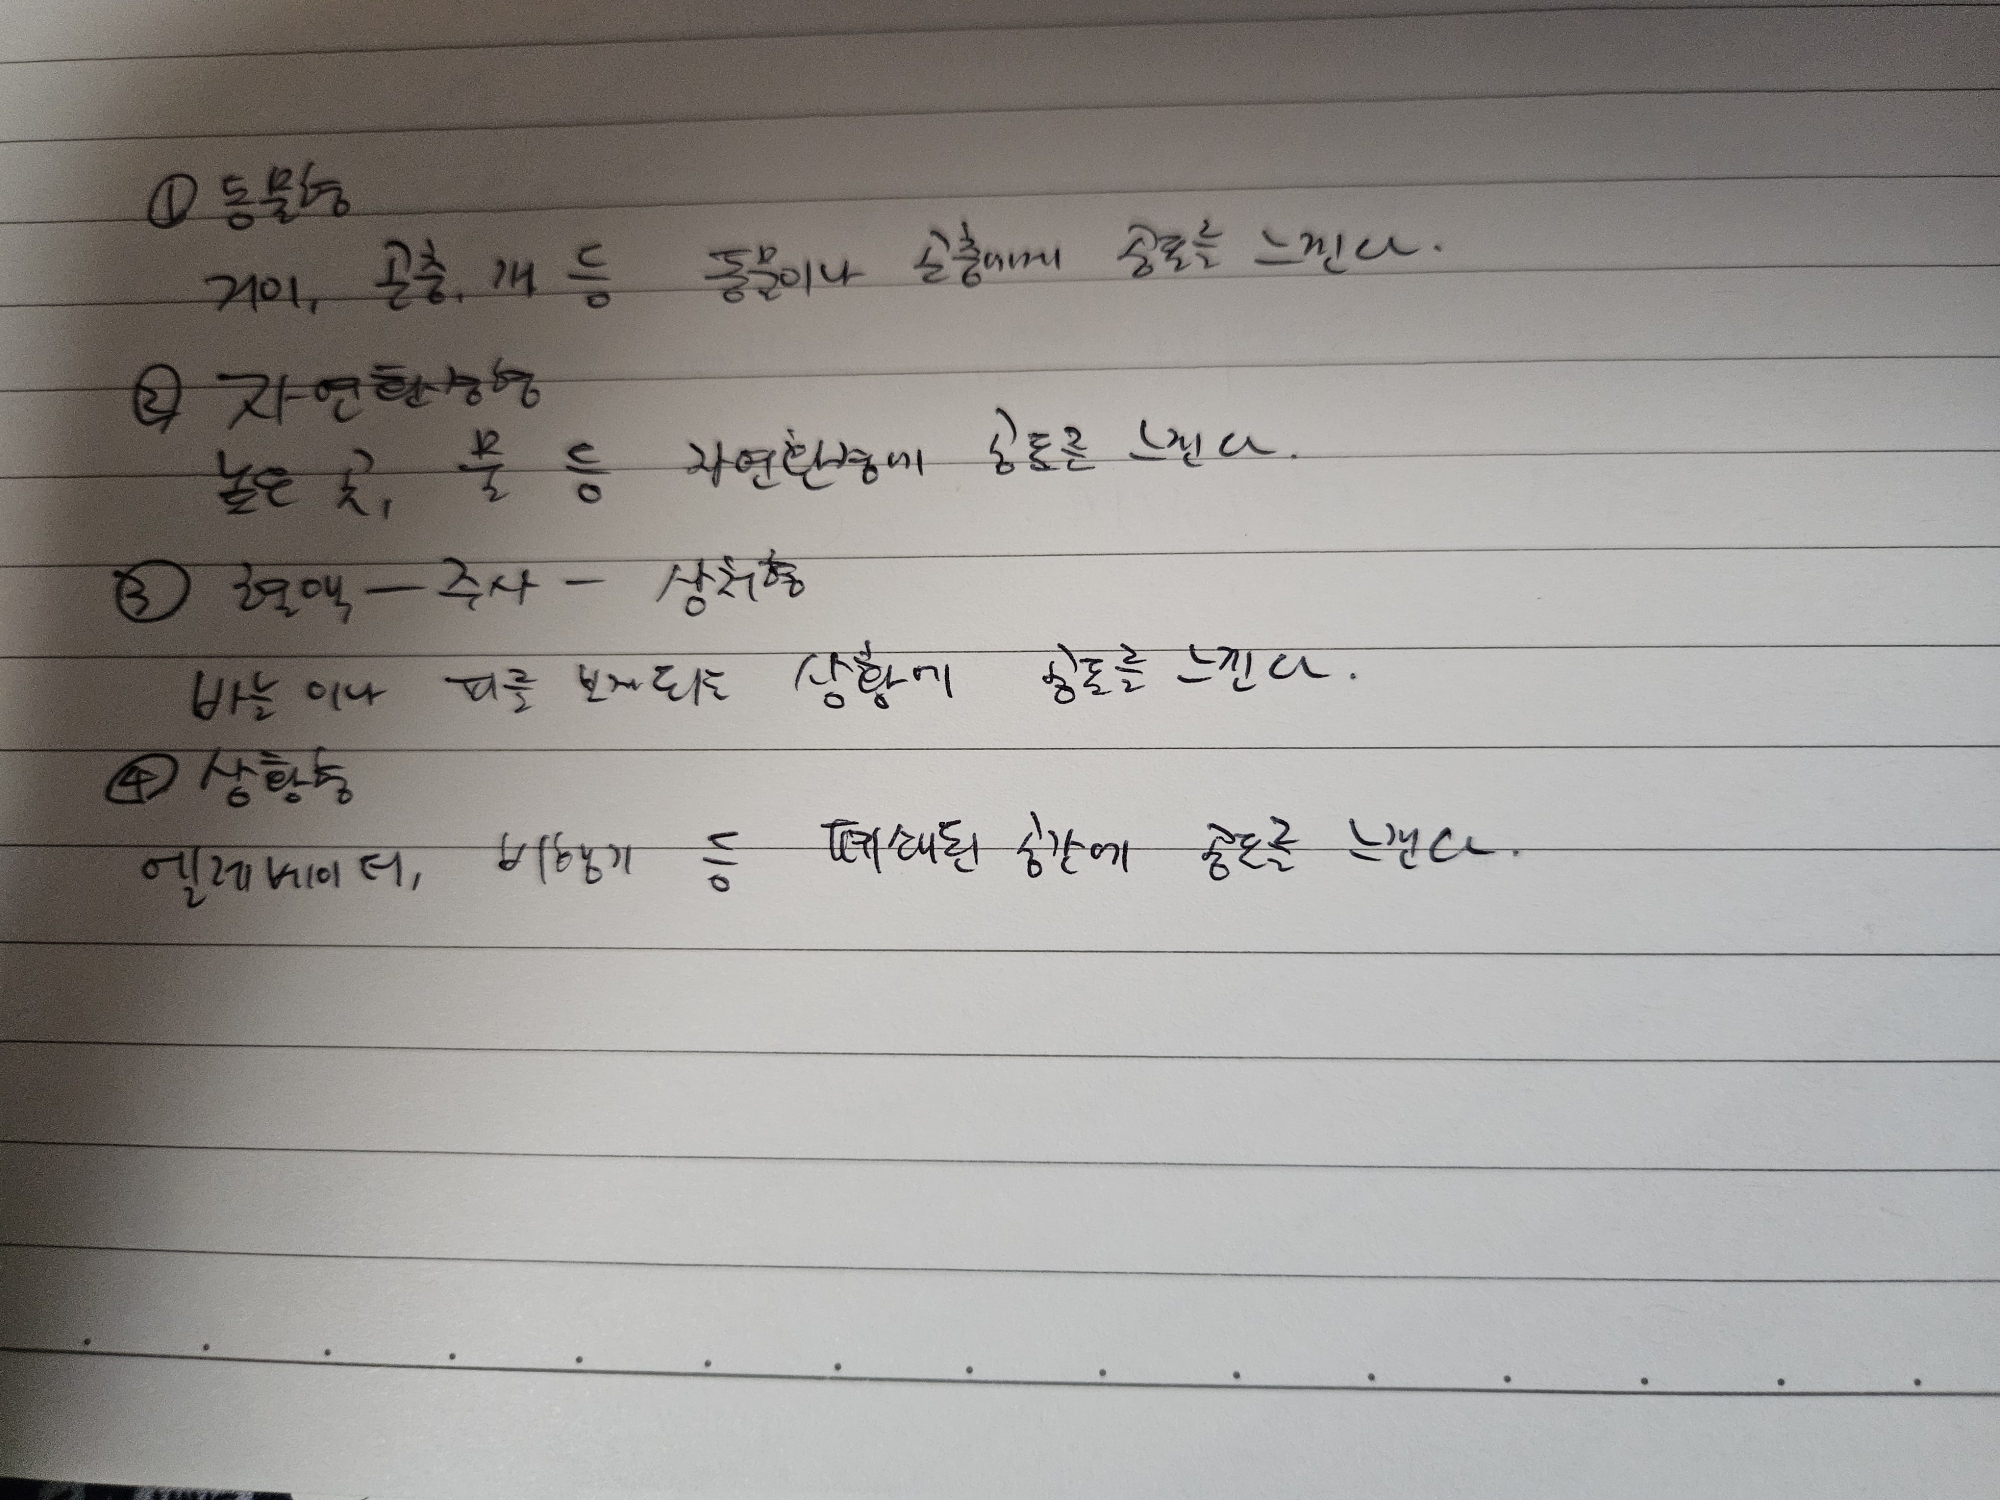 ① 동물형
거미, 곤충, 개 등 동물이나 곤충에게 공포를 느낀다.
② 자연환경형
높은 곳, 물 등 자연환경에 공포를 느낀다.
③ 혈액 - 주사 - 상처형
바늘이나 피를 보게되는 상황에 공포를 느낀다.
④ 상황형
엘레베이터, 비행기 등 폐쇄된 공간에 공포를 느낀다.